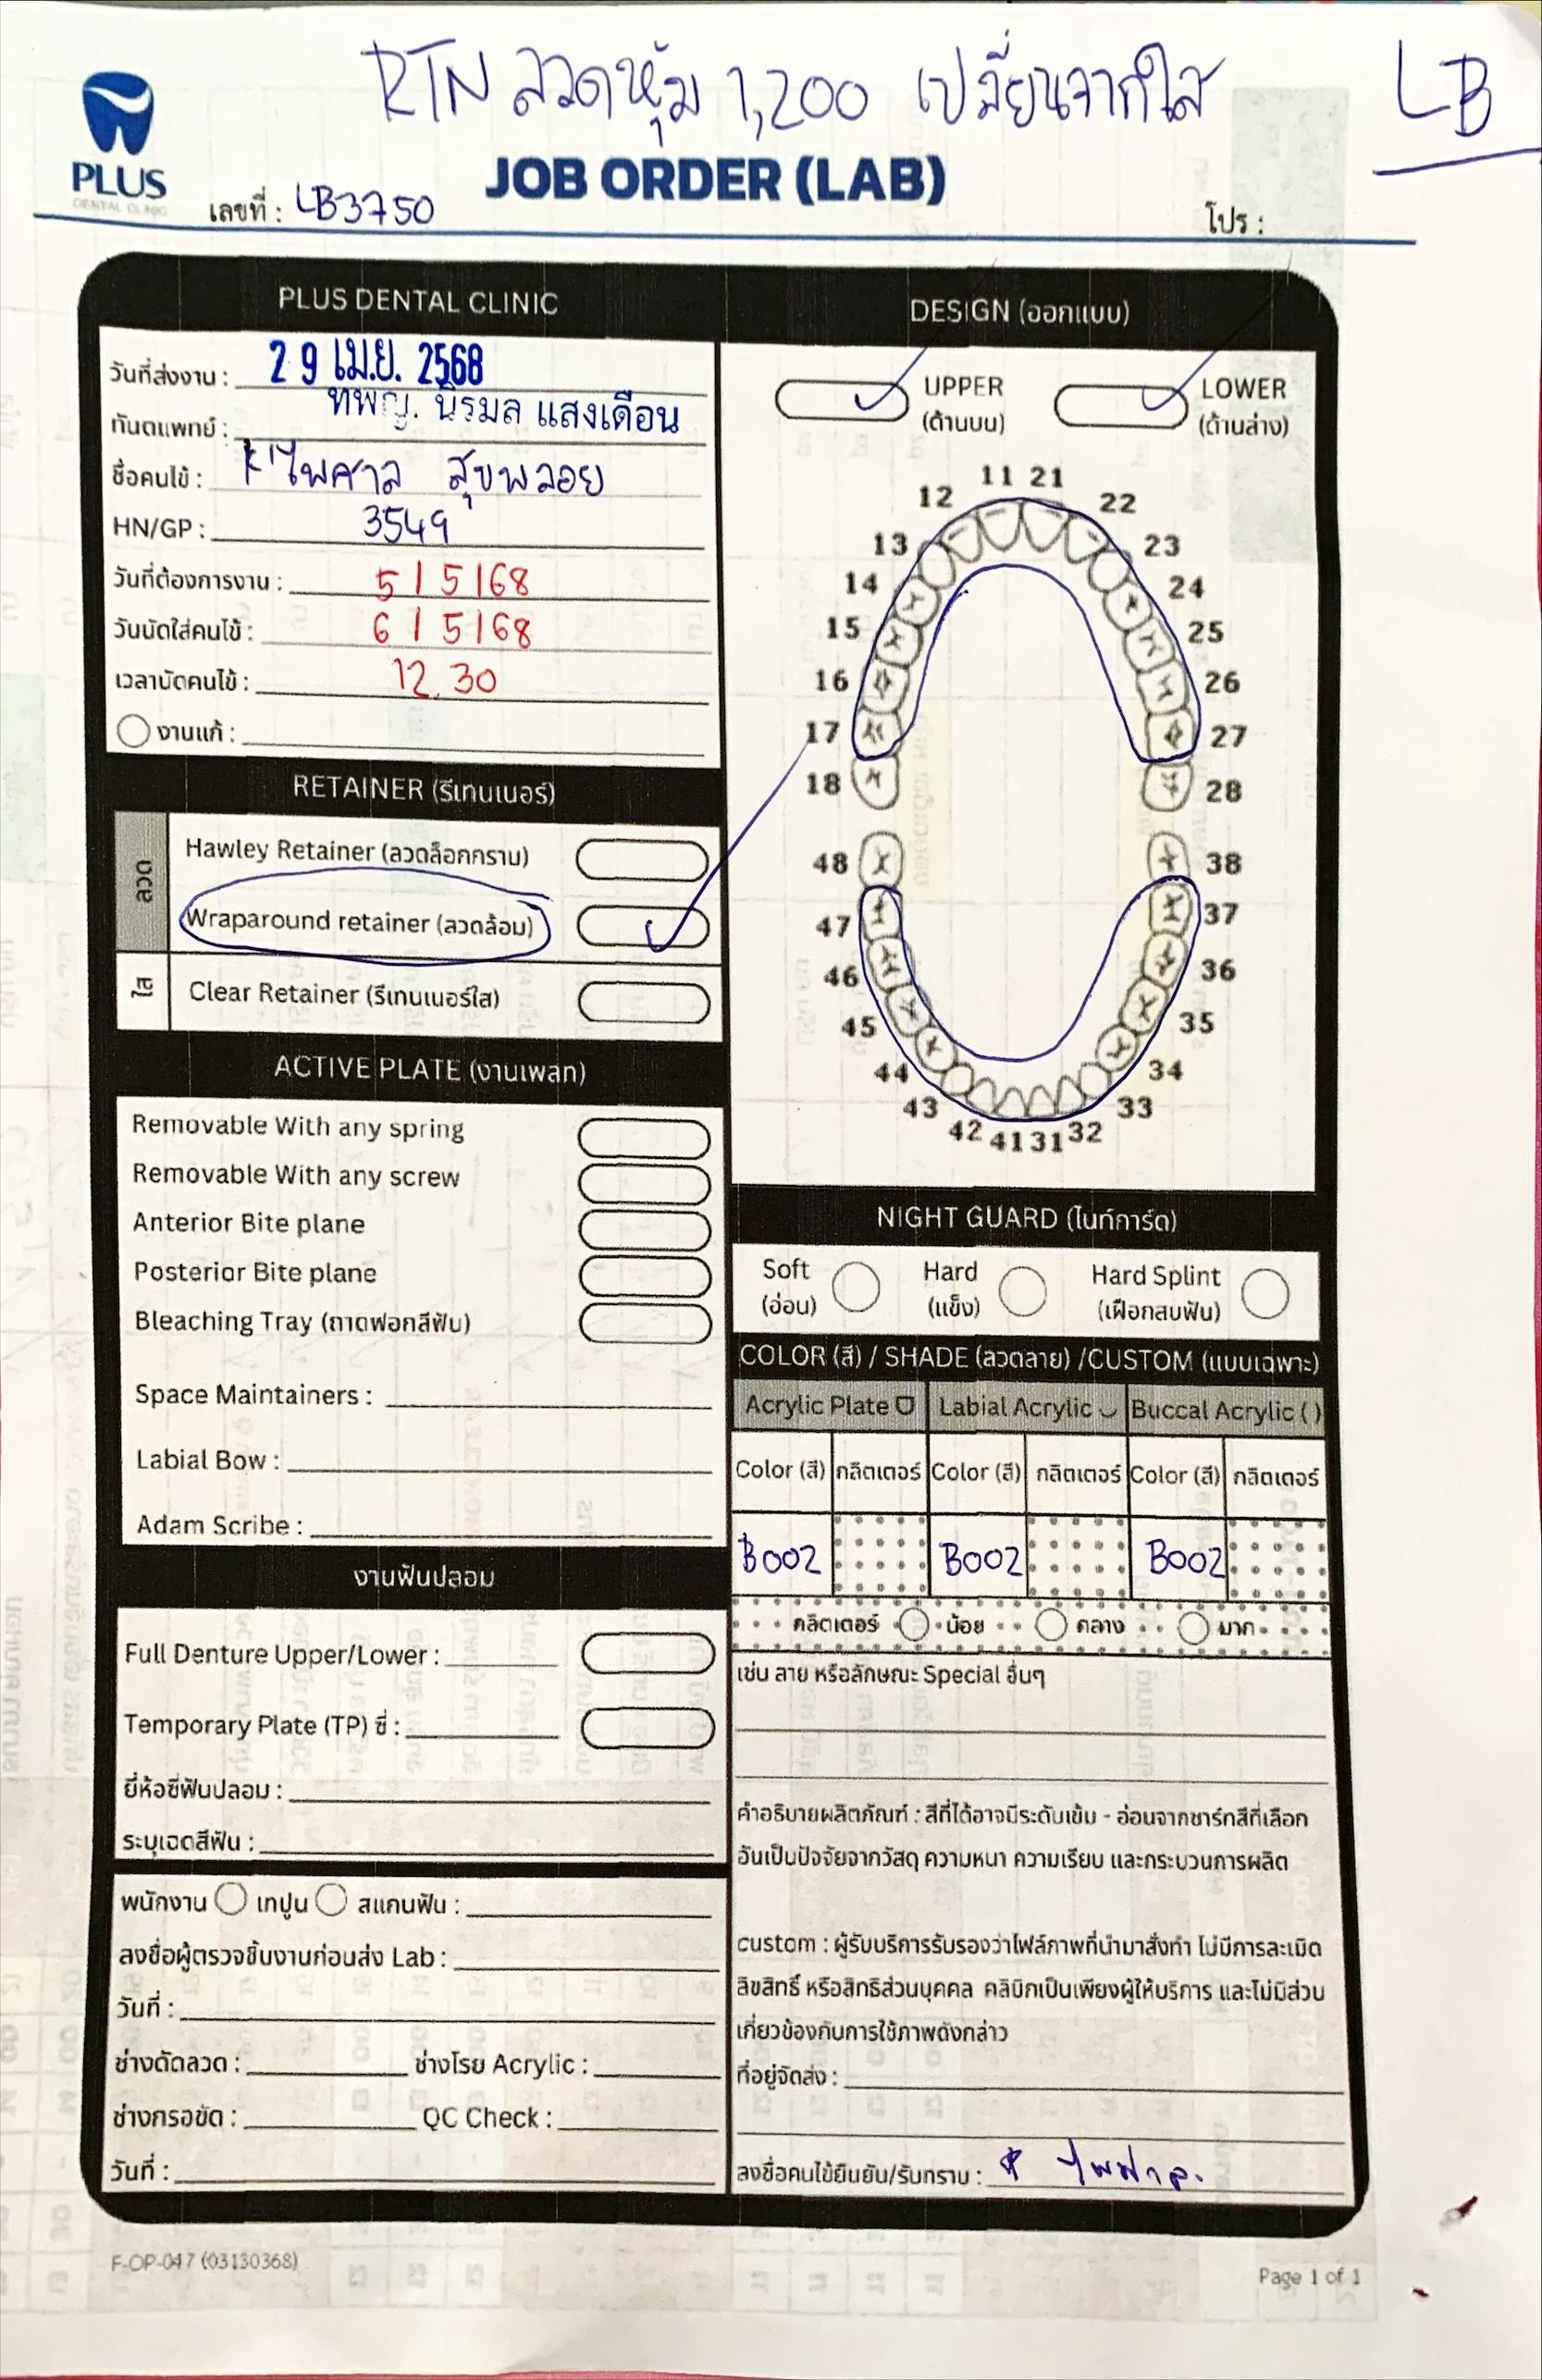 RTN ลวดหุ้ม 1,200 เปลี่ยนจากใส
LB
PLUS
DENTAL CLINIC
JOB ORDER (LAB)
เลขที่ : LB3750
โปร :
PLUS DENTAL CLINIC
วันที่ส่งงาน : 29 เม.ย. 2568
ทันตแพทย์ : ทพญ. นิรมล แสงเดือน
ชื่อคนไข้ : K'ไพศาล สุขพลอย
HN/GP : 3549
วันที่ต้องการงาน : 5/5/68
วันนัดใส่คนไข้ : 6/5/68
เวลานัดคนไข้ : 12.30
งานแก้ :
RETAINER (รีเทนเนอร์)
ลวด
Hawley Retainer (ลวดล็อกกราม)
Wraparound retainer (ลวดล้อม)
ใส
Clear Retainer (รีเทนเนอร์ใส)
ACTIVE PLATE (งานเพลท)
Removable With any spring
Removable With any screw
Anterior Bite plane
Posterior Bite plane
Bleaching Tray (ถาดฟอกสีฟัน)
Space Maintainers :
Labial Bow :
Adam Scribe :
งานฟันปลอม
Full Denture Upper/Lower :
Temporary Plate (TP) ซี่ :
ยี่ห้อซี่ฟันปลอม :
ระบุเฉดสีฟัน :
พนักงาน เทปูน สแกนฟัน :
ลงชื่อผู้ตรวจชิ้นงานก่อนส่ง Lab :
วันที่ :
ช่างดัดลวด : ช่างโรย Acrylic :
ช่างกรอขัด : QC Check :
วันที่ :
DESIGN (ออกแบบ)
UPPER LOWER
(ด้านบน) (ด้านล่าง)
11 21
12 22
13 23
14 24
15 25
16 26
17 27
18 28
48 38
47 37
46 36
45 35
44 34
43 33
42 41 31 32
NIGHT GUARD (ไนท์การ์ด)
Soft Hard Hard Splint
(อ่อน) (แข็ง) (เฝือกสบฟัน)
COLOR (สี) / SHADE (ลวดลาย) /CUSTOM (แบบเฉพาะ)
Acrylic Plate Labial Acrylic Buccal Acrylic ( )
Color (สี) กลิตเตอร์ Color (สี) กลิตเตอร์ Color (สี) กลิตเตอร์
B002 B002 B002
กลิตเตอร์ น้อย กลาง มาก
เช่น ลาย หรือลักษณะ Special อื่นๆ
คำอธิบายผลิตภัณฑ์ : สีที่ได้อาจมีระดับเข้ม - อ่อนจากชาร์ทสีที่เลือก
อันเป็นปัจจัยจากวัสดุ ความหนา ความเรียบ และกระบวนการผลิต
custom : ผู้รับบริการรับรองว่าไฟล์ภาพที่นำมาสั่งทำ ไม่มีการละเมิด
ลิขสิทธิ์ หรือสิทธิส่วนบุคคล คลินิกเป็นเพียงผู้ให้บริการ และไม่มีส่วน
เกี่ยวข้องกับการใช้ภาพดังกล่าว
ที่อยู่จัดส่ง :
ลงชื่อคนไข้ยืนยัน/รับทราบ : ไพศาล
F-OP-047 (03130368)
Page 1 of 1